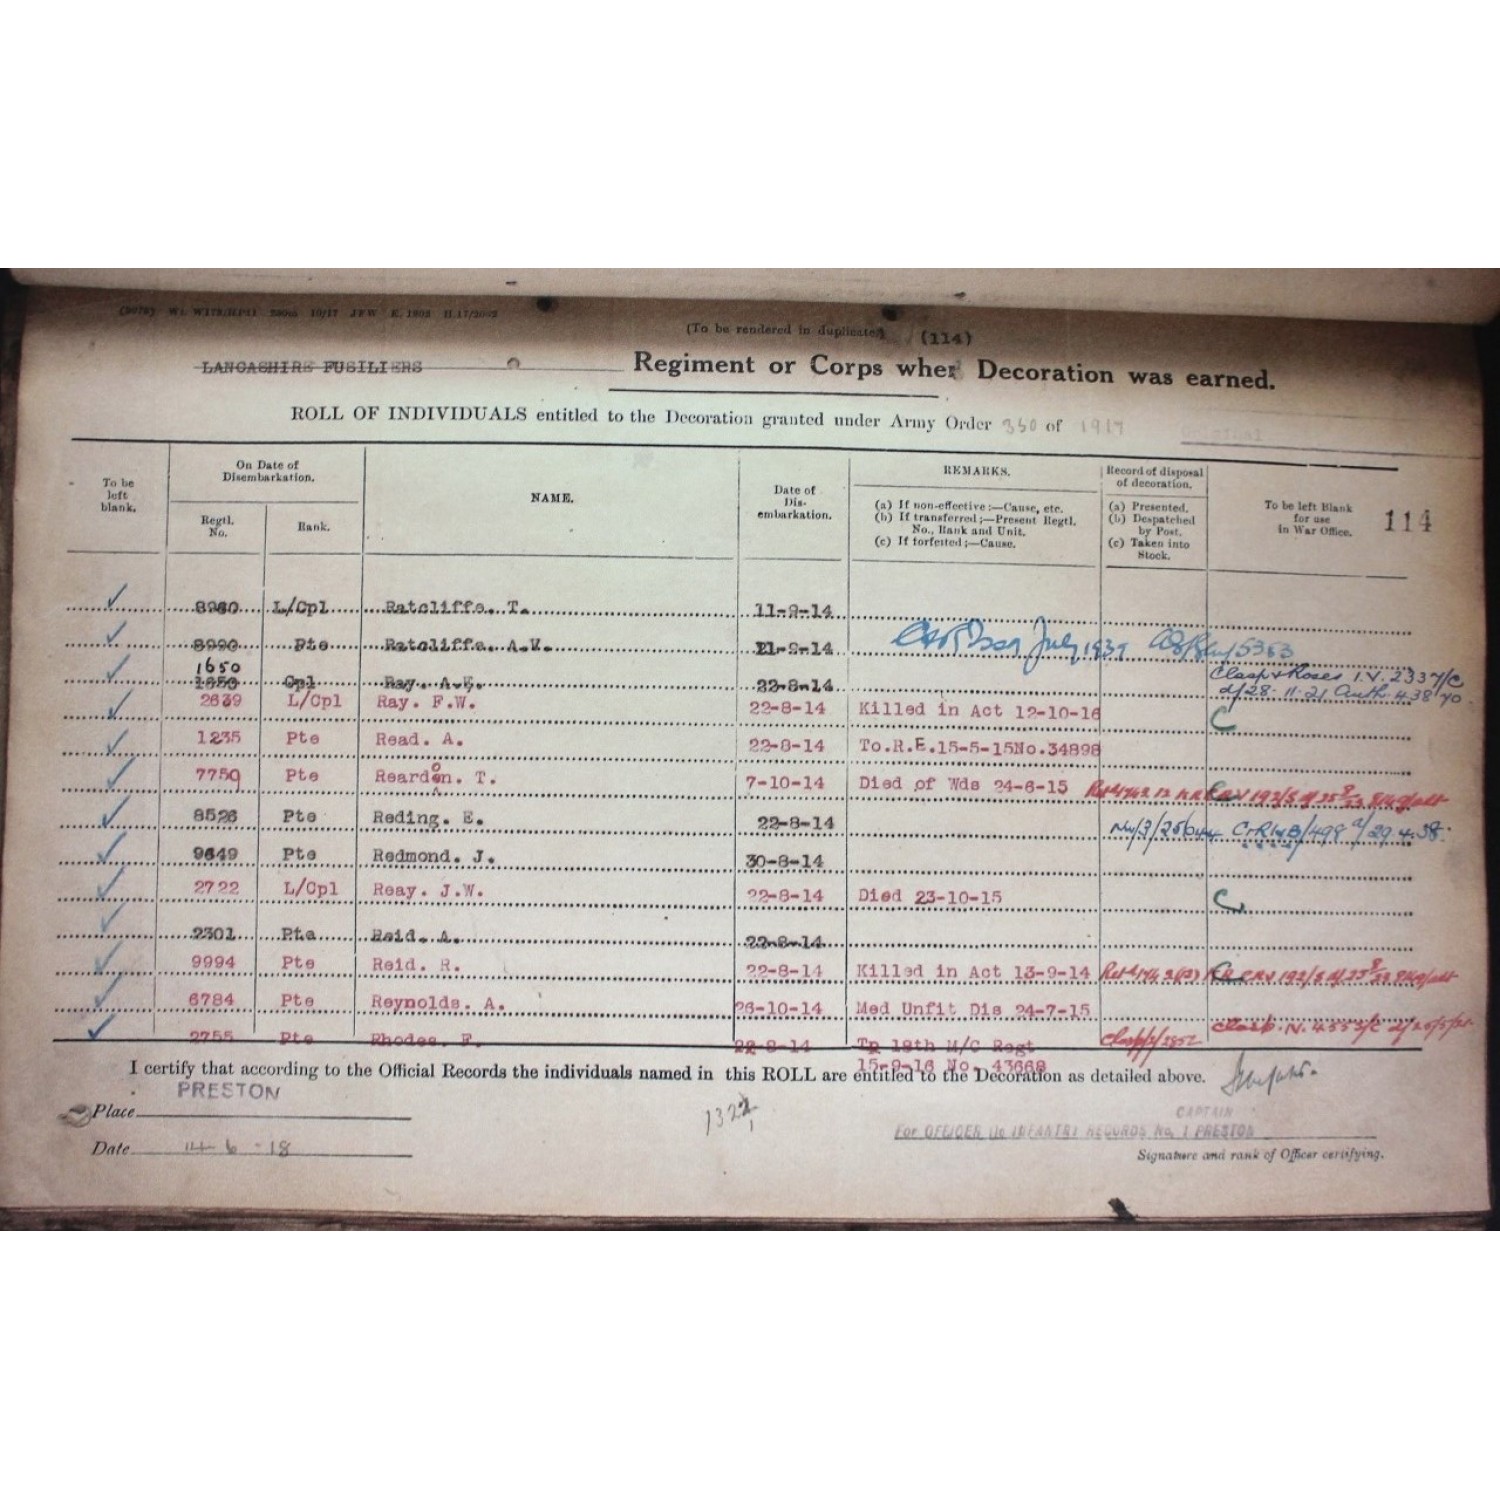 (To be rendered in duplicate) (114)
LANCASHIRE FUSILIERS Regiment or Corps when Decoration was earned.
ROLL OF INDIVIDUALS entitled to the Decoration granted under Army Order 350 of 1917
To be left blank.
On Date of Disembarkation.
Regtl. No.
Rank.
NAME.
Date of Dis-embarkation.
REMARKS.
(a) If non-effective :—Cause, etc.
(b) If transferred ;—Present Regtl. No., Rank and Unit.
(c) If forfeited ;—Cause.
Record of disposal of decoration.
(a) Presented.
(b) Despatched by Post.
(c) Taken into Stock.
To be left Blank for use in War Office.
114
8980 L/Cpl Ratcliffe. T. 11-9-14
8990 Pte Ratcliffe. A.W. 21-9-14 July 1937
1650
Cpl Ray. A.E. 22-8-14 Clasp & Roses I.V. 2337/C
d/28.11.21 Auth.
2639 L/Cpl Ray. F.W. 22-8-14 Killed in Act 12-10-16 C
1235 Pte Read. A. 22-8-14 To.R.E.15-5-15No.34898
7759 Pte Reardon. T. 7-10-14 Died of Wds 24-6-15
8526 Pte Reding. E. 22-8-14 29.4.38.
9649 Pte Redmond. J. 30-8-14
2722 L/Cpl Reay. J.W. 22-8-14 Died 23-10-15 C
2301 Pte Reid. A. 22-8-14
9994 Pte Reid. R. 22-8-14 Killed in Act 13-9-14
6784 Pte Reynolds. A. 26-10-14 Med Unfit Dis 24-7-15
2755 Pte Rhodes. F. 22-8-14 Tp 18th M/C Regt
15-9-16 No. 43668
I certify that according to the Official Records the individuals named in this ROLL are entitled to the Decoration as detailed above.
PRESTON
Place
CAPTAIN
For OFFICER i/c INFANTRY RECORDS No. 1 PRESTON
Date 14 6 -18
Signature and rank of Officer certifying.